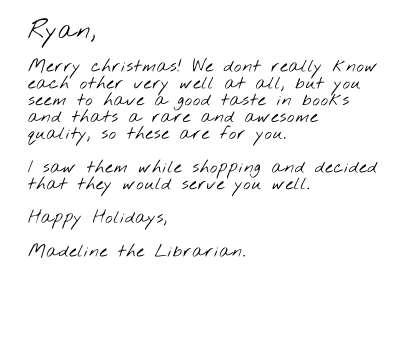 Ryan,
Merry christmas! We dont really know
each other very well at all, but you
seem to have a good taste in books
and thats a rare and awesome
quality, so these are for you.
I saw them while shopping and decided
that they would serve you well.
Happy Holidays,
Madeline the Librarian.